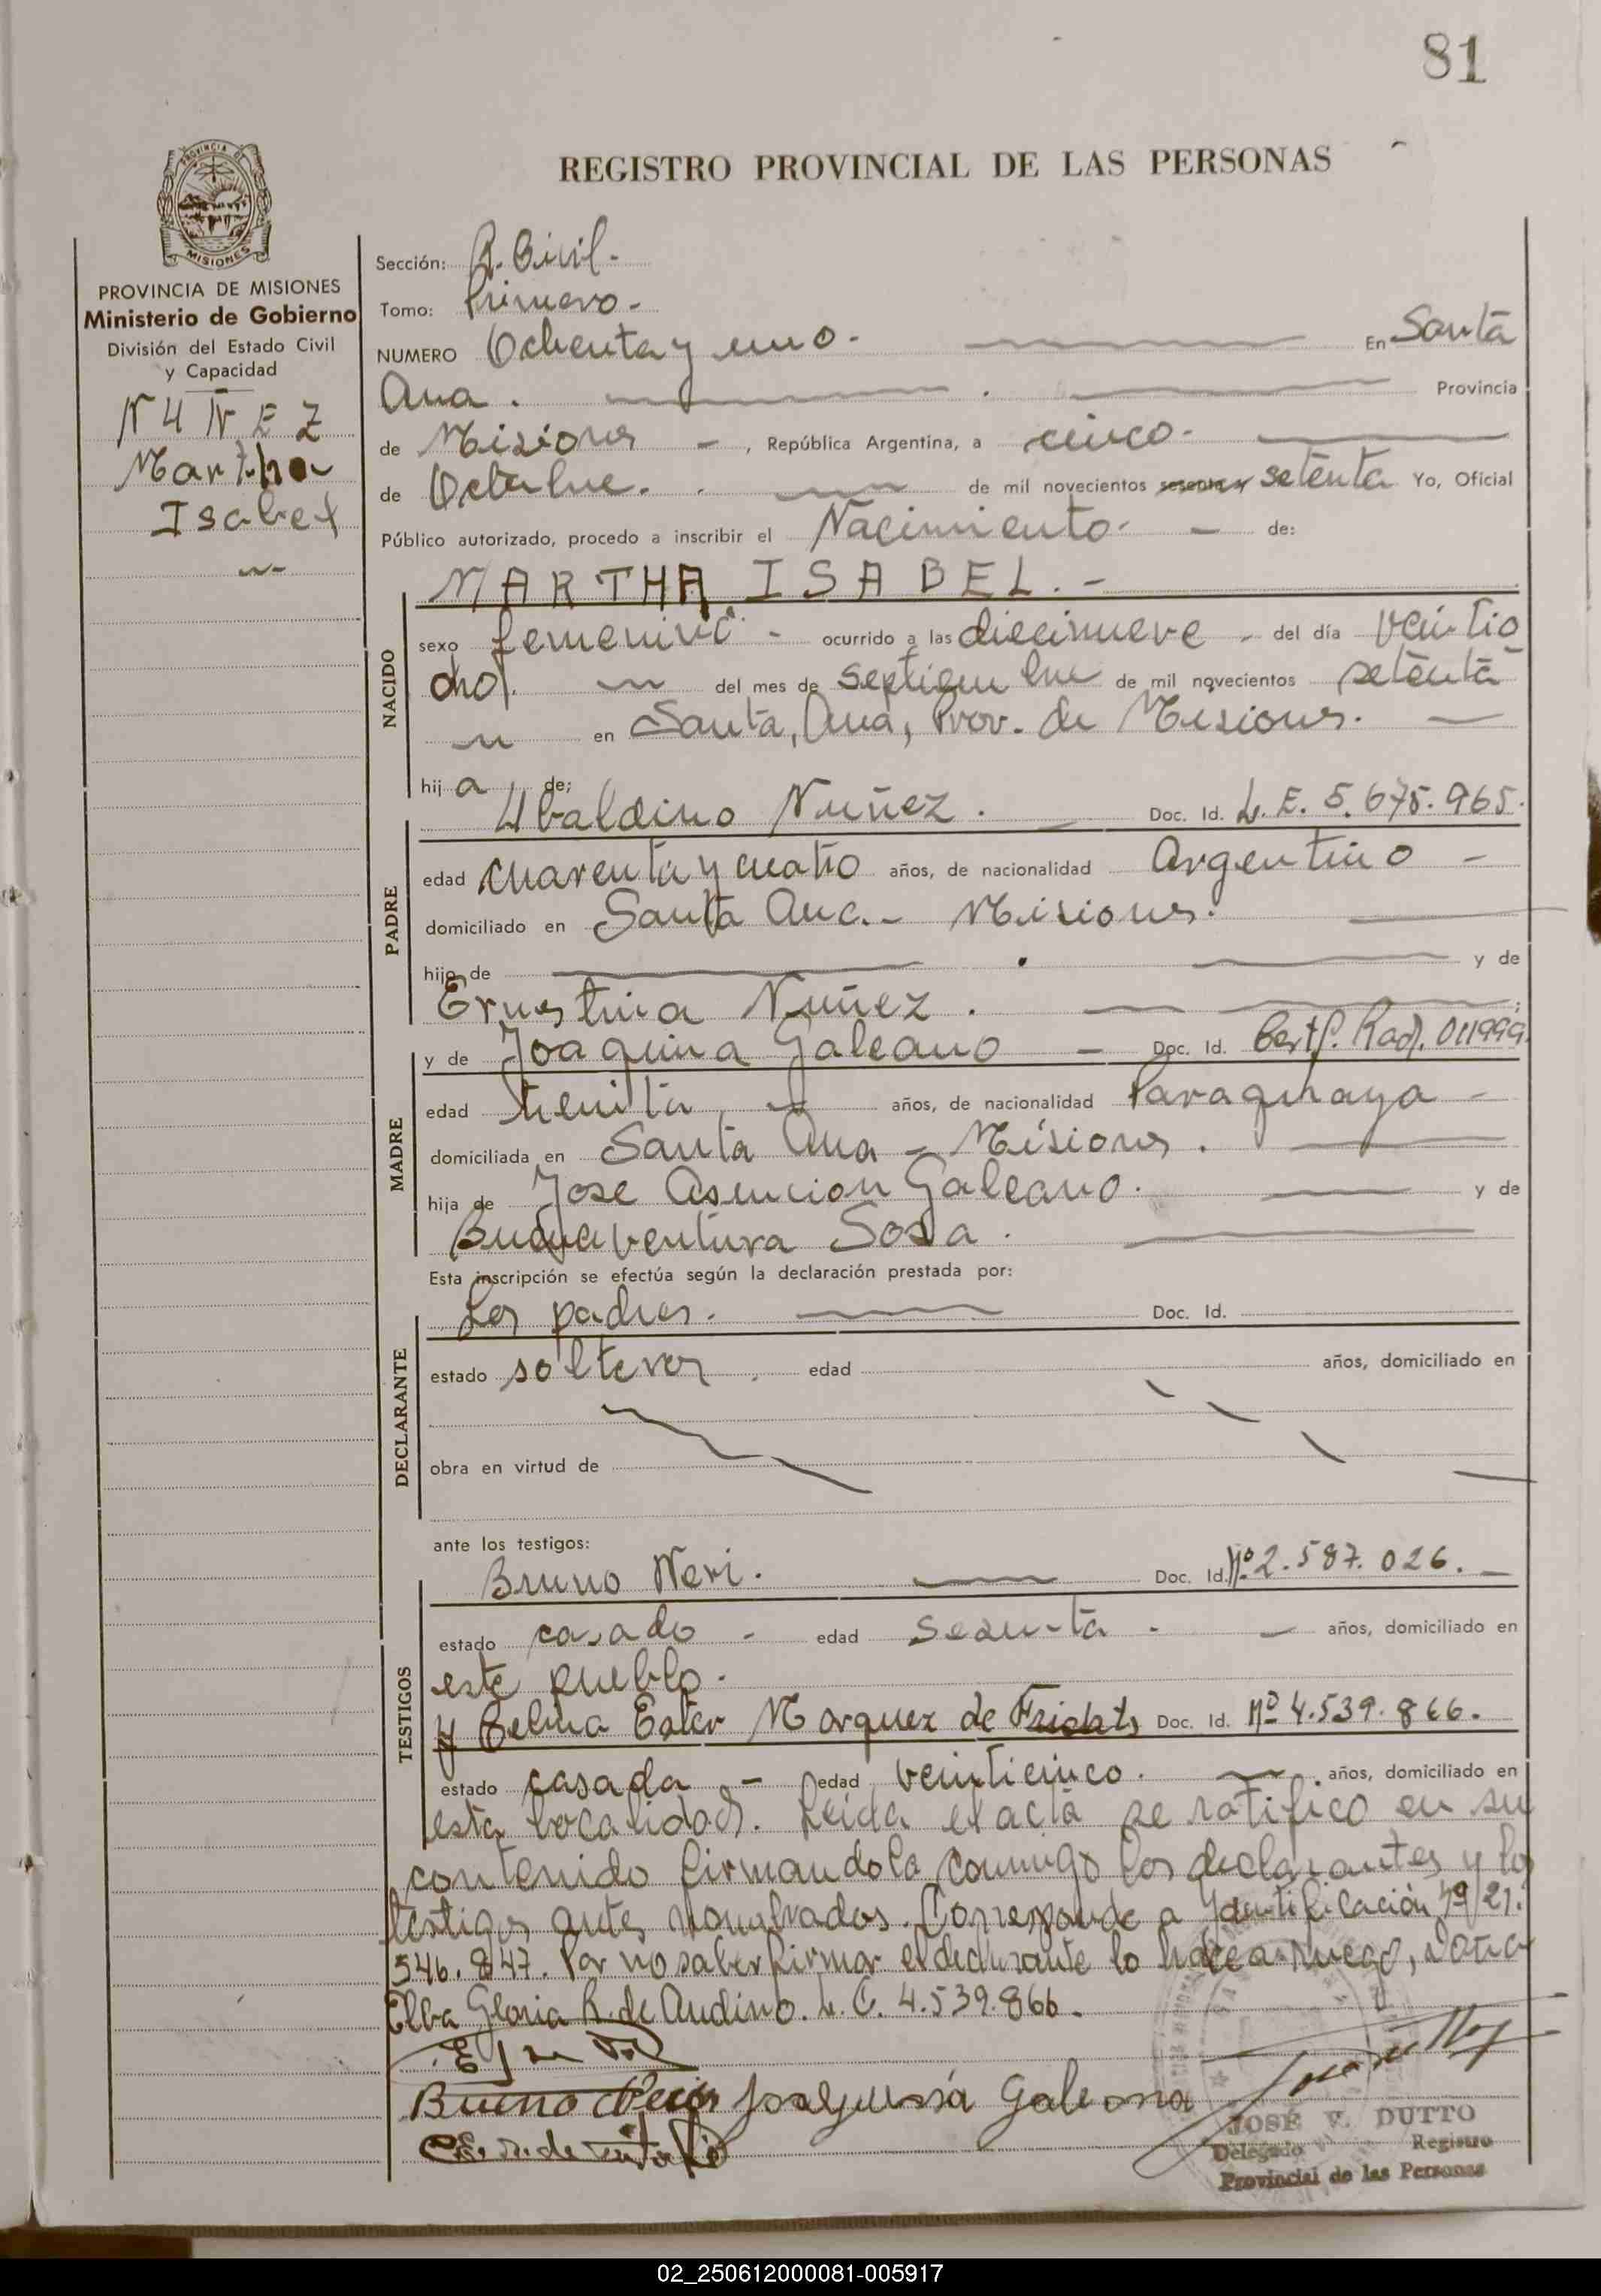 81
REGISTRO PROVINCIAL DE LAS PERSONAS
PROVINCIA DE
MISIONES
PROVINCIA DE MISIONES
Ministerio de Gobierno
División del Estado Civil
y Capacidad
NUÑEZ
Martha
Isabel
Sección: R. Civil.-
Tomo: Primero.-
NUMERO Ochenta y uno.- En Santa
Ana. Provincia
de Misiones -, República Argentina, a cinco.-
de Octubre. de mil novecientos sesenta y setenta Yo, Oficial
Público autorizado, procedo a inscribir el Nacimiento.- de:
MARTHA ISABEL.-
NACIDO
sexo femenino - ocurrido a las diecinueve - del día veintio
cho. del mes de septiembre de mil novecientos setenta
en Santa, Ana, Prov. de Misiones.
hij a de;
PADRE
Ubaldino Nuñez. Doc. Id. L. E. 5.675.965.
edad cuarenta y cuatro años, de nacionalidad Argentino -
domiciliado en Santa Ana.- Misiones.
hijo de y de
Ernestina Nuñez. ;
MADRE
y de Joaquina Galeano - Doc. Id. Certf. Rad. 011999.
edad treinta, años, de nacionalidad Paraguaya -
domiciliada en Santa Ana - Misiones.
hija de Jose Asuncion Galeano. y de
Buenaventura Sosa.
Esta inscripción se efectúa según la declaración prestada por:
DECLARANTE
Los padres. Doc. Id.
estado solteros, edad años, domiciliado en
obra en virtud de
ante los testigos:
TESTIGOS
Bruno Neri. Doc. Id. Nº 2.587.026.-
estado casado - edad sesenta - años, domiciliado en
este pueblo.
y Celina Ester Marquez de Doc. Id. Nº 4.539.866.
estado casada - edad veinticinco. años, domiciliado en
esta localidad. Leida el acta se ratifico en su
contenido firmandola conmigo los declarantes y los
testigos antes nombrados. Corresponde a Identificación Nº 21.
546.847. Por no saber firmar el declarante lo hace a ruego,
Elba Gloria R. de Audino. L. C. 4.539.866.
Bruno Neris Joaquina Galeano
JOSÉ V. DUTTO
Delegado Registro
Provincial de las Personas
02_250612000081-005917